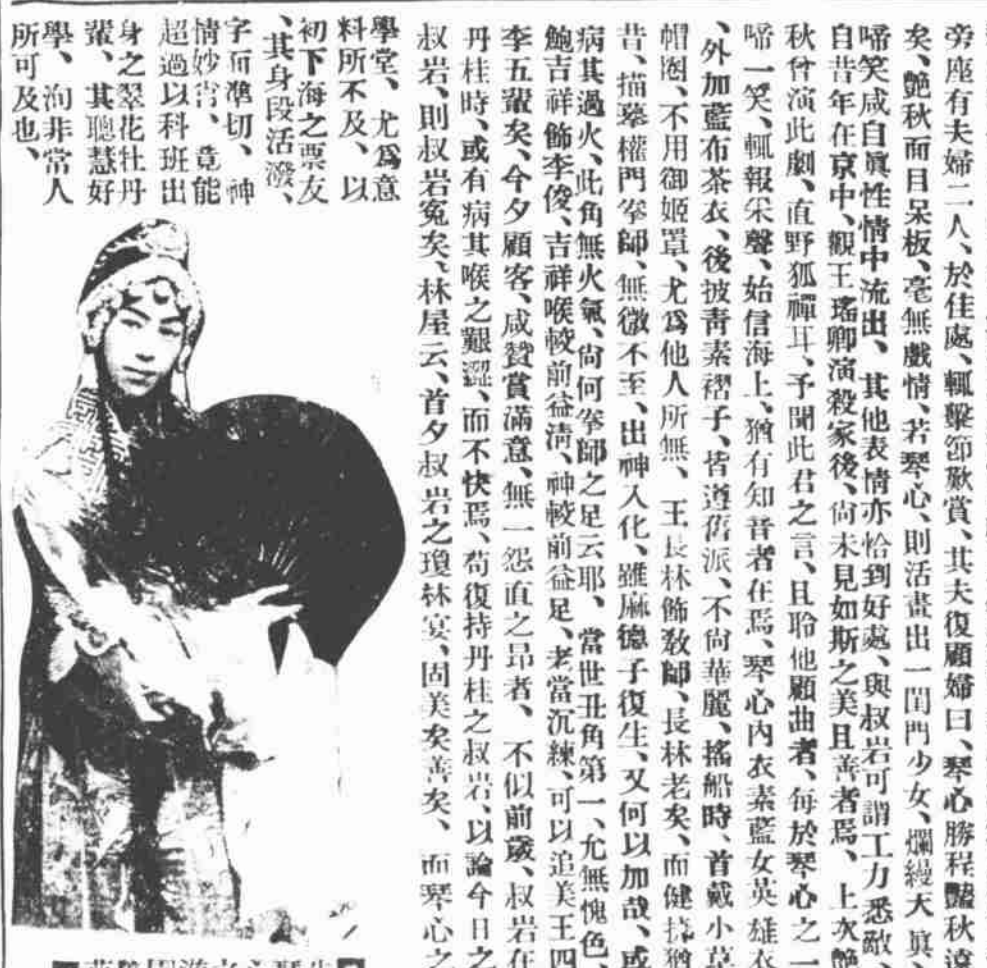 旁座有夫婦二人、於佳處、輒擊節歎賞、其夫復顧婦曰、琴心勝程豔秋遠
矣、艷秋面目呆板、毫無戲情、若琴心、則活畫出一閨門少女、爛縵天眞、
啼笑咸自眞性情中流出、其他表情亦恰到好處、與叔岩可謂工力悉敵、
自昔年在京中、觀王瑤卿演殺家後、尙未見如斯之美且善者焉、上次艷
秋曾演此劇、直野狐禪耳、予聞此君之言、且聆他顧曲者、每於琴心之一
啼一笑、輒報采聲、始信海上、猶有知音者在焉、琴心內衣素藍女英雄衣
、外加藍布茶衣、後披靑素褶子、皆遵舊派、不尙華麗、搖船時、首戴小草
帽圈、不用御姬罩、尤爲他人所無、王長林飾敎師、長林老矣、而健捷猶
昔、描摹權門拳師、無微不至、出神入化、雖麻德子復生、又何以加哉、或
病其過火、此角無火氣、尙何拳師之足云耶、當世丑角第一、允無愧色、
鮑吉祥飾李俊、吉祥喉較前益淸、神較前益足、老當沉練、可以追美王四
李五輩矣、今夕顧客、咸贊賞滿意、無一怨直之昂者、不似前歲、叔岩在
丹桂時、或有病其喉之艱澀、而不快焉、苟復持丹桂之叔岩、以論今日之
叔岩、則叔岩冤矣、林屋云、首夕叔岩之瓊林宴、固美矣善矣、而琴心之
學堂、尤爲意
料所不及、以
初下海之票友
、其身段活潑、
字面準切、神
情妙肯、竟能
超過以科班出
身之翠花牡丹
輩、其聰慧好
學、洵非常人
所可及也、